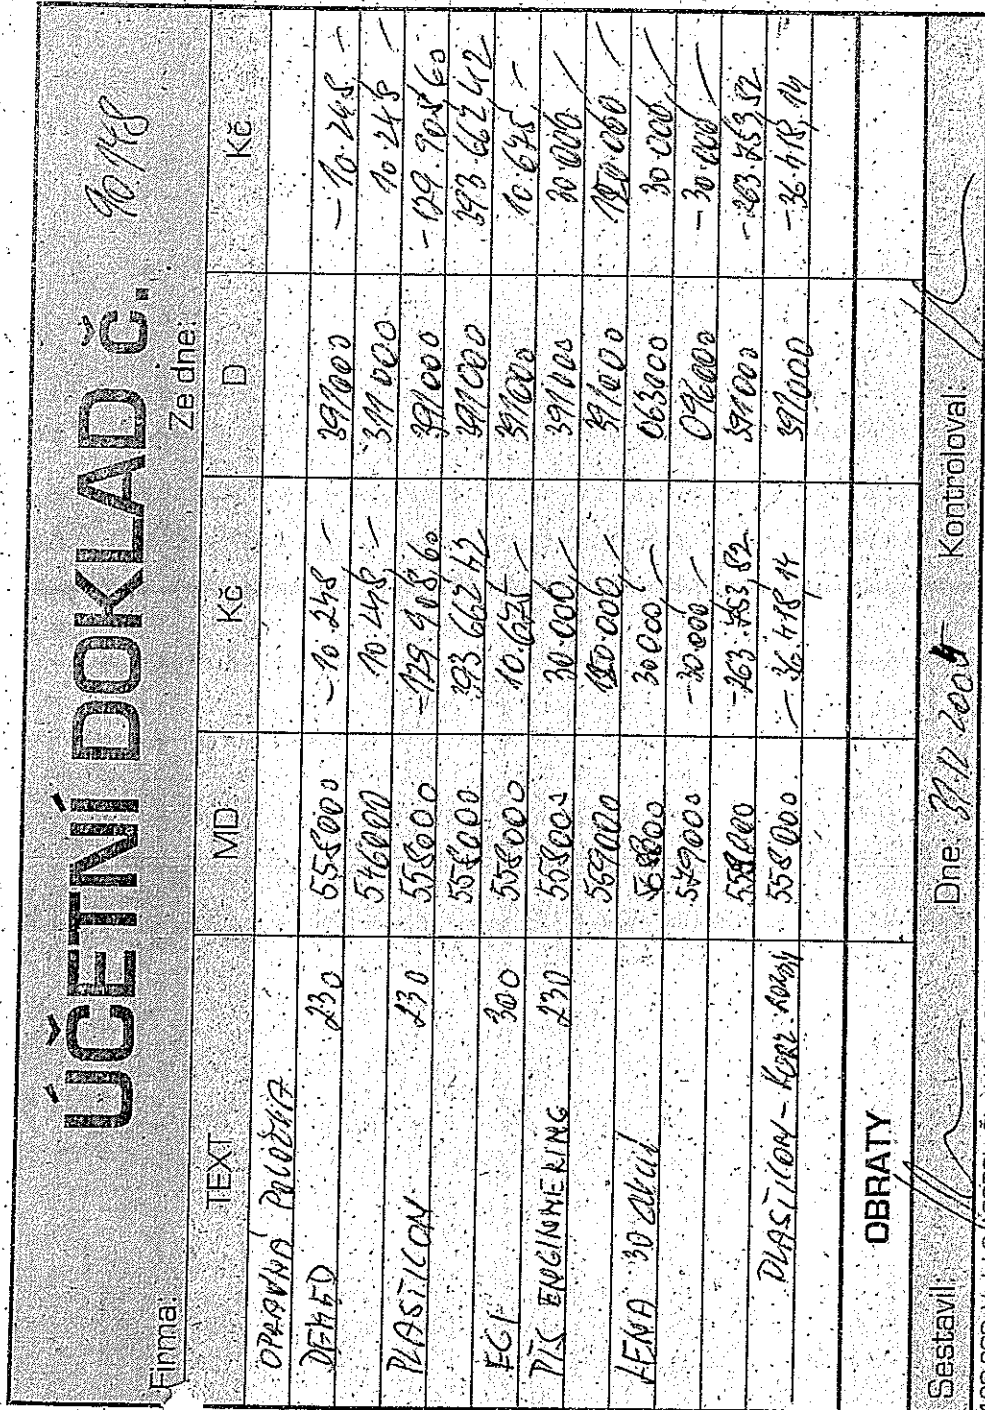 ÚČETNÍ DOKLAD č. 90148
Firma: Ze dne:
TEXT MD Kč D Kč
OPRAVNÁ POLOŽKA
230 558000 -10.248 - 391000 -10.248 -
546000 10.248,- 311000 10.248 -
PLASTICON 230 558000 -129.908,60 391000 -129.908,60
558000 393.662,42 391000 393.662,42
EGI 300 558000 10.675,- 391000 10.675,-
PTS ENGINNERING 230 558000 30.000,- 391000 30.000,-
559000 391000
30.000,- 063000 30.000,-
579000 -30.000,- 096000 -30.000,-
-263.753,82 391000 -263.753,82
PLASTICON - KURZ 558000 -36.418,14 391000 -36.418,14
OBRATY
Sestavil: Dne: 31.12.2004 Kontroloval: